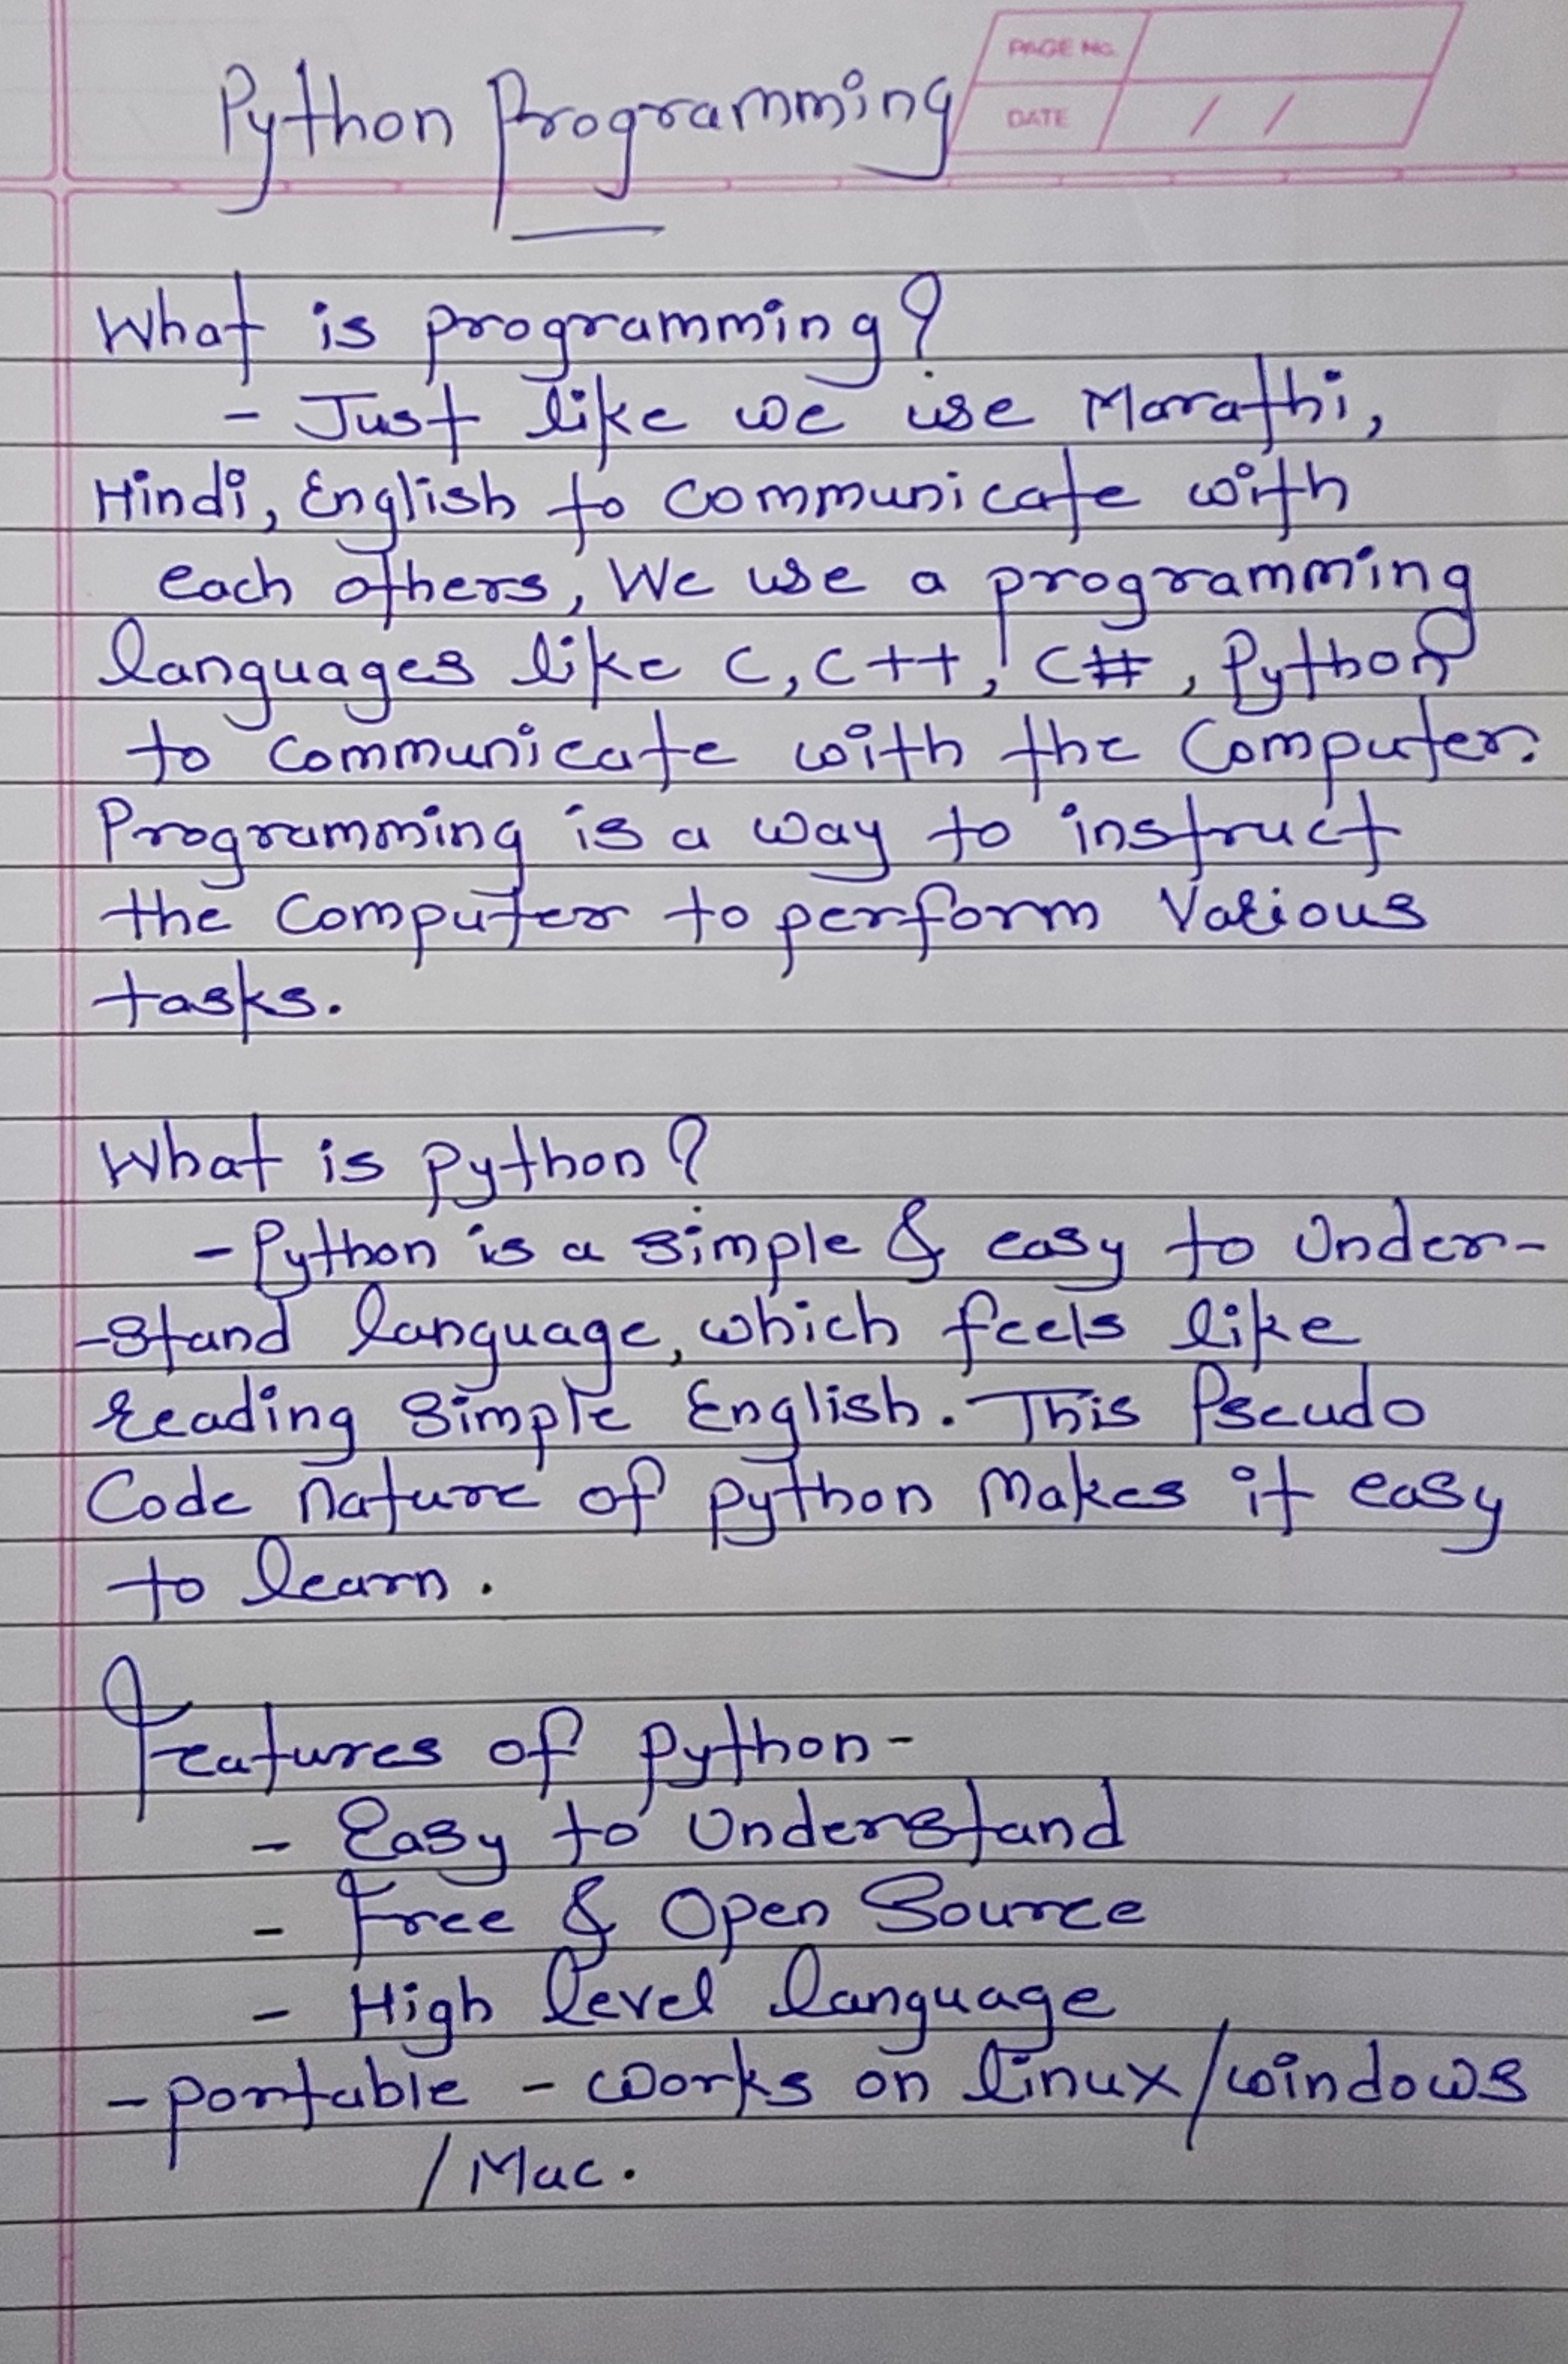 Python Programming
PAGE NO.
DATE / /
What is programming?
- Just like we use Marathi,
Hindi, English to communicate with
each others, We use a programming
languages like C, C++, C#, Python
to communicate with the Computer.
Programming is a way to instruct
the Computer to perform Various
tasks.
What is python?
- Python is a simple & easy to Under-
-stand language, which feels like
reading simple English. This Pseudo
Code nature of python Makes it easy
to learn.
Features of python-
- Easy to Understand
- Free & Open Source
- High level language
- portable - works on linux/windows
/Mac.